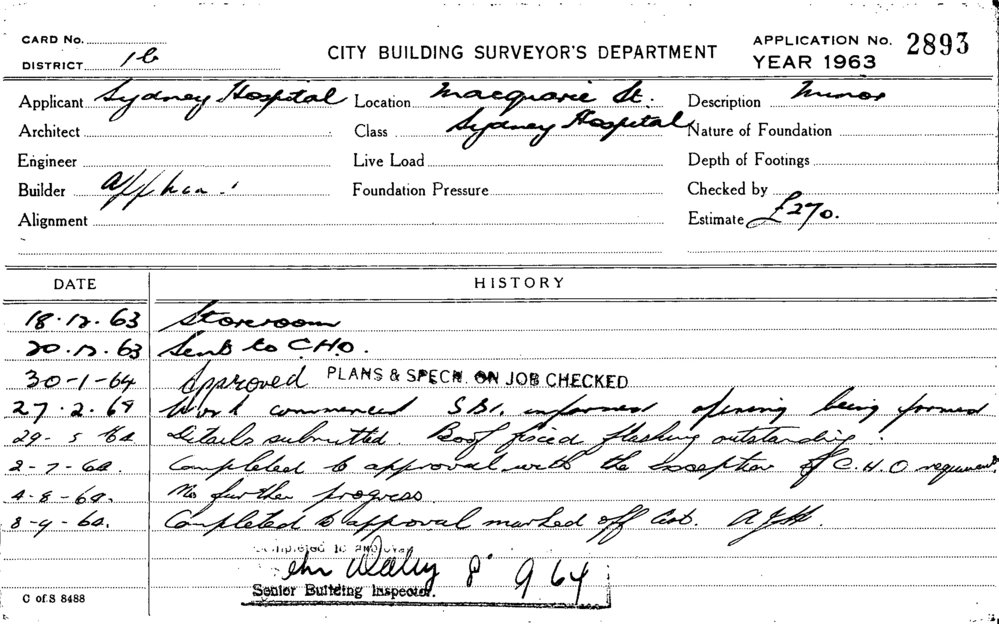 CARD No.
CITY BUILDING SURVEYOR'S DEPARTMENT
APPLICATION No. 2893
DISTRICT 1b
YEAR 1963
Applicant Sydney Hospital Location Macquarie St. Description Minor
Architect Class Sydney Hospital Nature of Foundation
Engineer Live Load Depth of Footings
Builder Foundation Pressure Checked by
Alignment Estimate £270.
DATE HISTORY
18.12.63 Storeroom
20.12.63 Sent to C.H.O.
30-1-64 Approved PLANS & SPECN. ON JOB CHECKED
27.2.64 Work commenced S.B.I. informed opening being formed
29-5-64 Details submitted. Roof flashing outstanding.
2-7-64. Completed to approval with the exception of C.H.O requirements.
4-8-64. No further progress.
8-9-64. Completed to approval marked off
Completed to approval
8 9 64
Senior Building Inspector.
C of S 8488